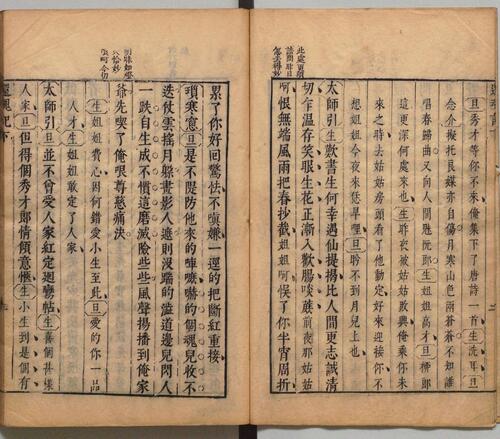 旦秀才等你不來俺集下了唐詩一首生洗耳旦
念介擬托良媒亦自傷月寒山色兩蒼蒼不知誰
唱春歸曲又向人間魅阮郎生姐姐高才旦柳郎
這更深何處來也生昨夜被姑姑敗興俺乘你未
來之時去姑姑房頭看了他動定好來迎接你不
想姐姐今夜來恁早哩旦盼不到月兒上也
太師引生歎書生何幸遇仙提揭比人間更志誠清
切乍溫存笑眼生花正漸入歡腸啖蔗前夜那姑姑
呵恨無端風雨把春抄截姐姐呵悞了你半宵周折
累了你好回驚怯不嗔嫌一逕的把斷紅重接
瑣寒窓旦是不隄防他來的唓嗻嚇的個魂兒收不
迭仗雲搖月躲畫影人遮則沒揣的澁道邊兒閃人
一跌自生成不慣這磨滅險些些風聲揚播到俺家
爺先喫了俺哏尊慈痛決
生姐姐費心因何錯愛小生至此旦愛的你一品
人才生姐姐敢定了人家
太師引旦並不曾受人家紅定迴鸞帖生喜個甚樣
人家旦但得個秀才郎情傾意愜生小生到是個有